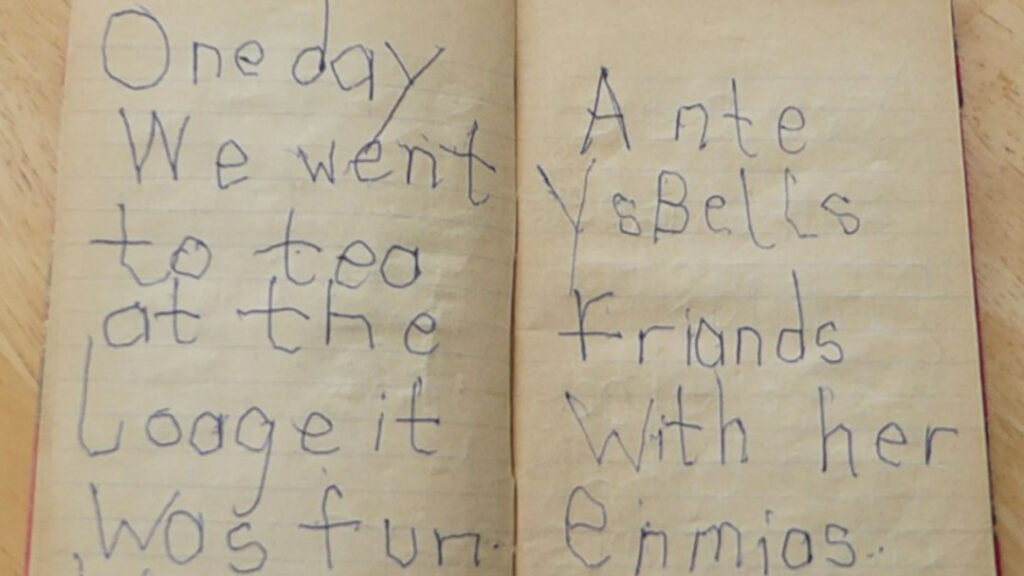 One day
We went
to tea
at the
Looge it
Was fun.
Ante
YsBells
friands
With her
enmios..